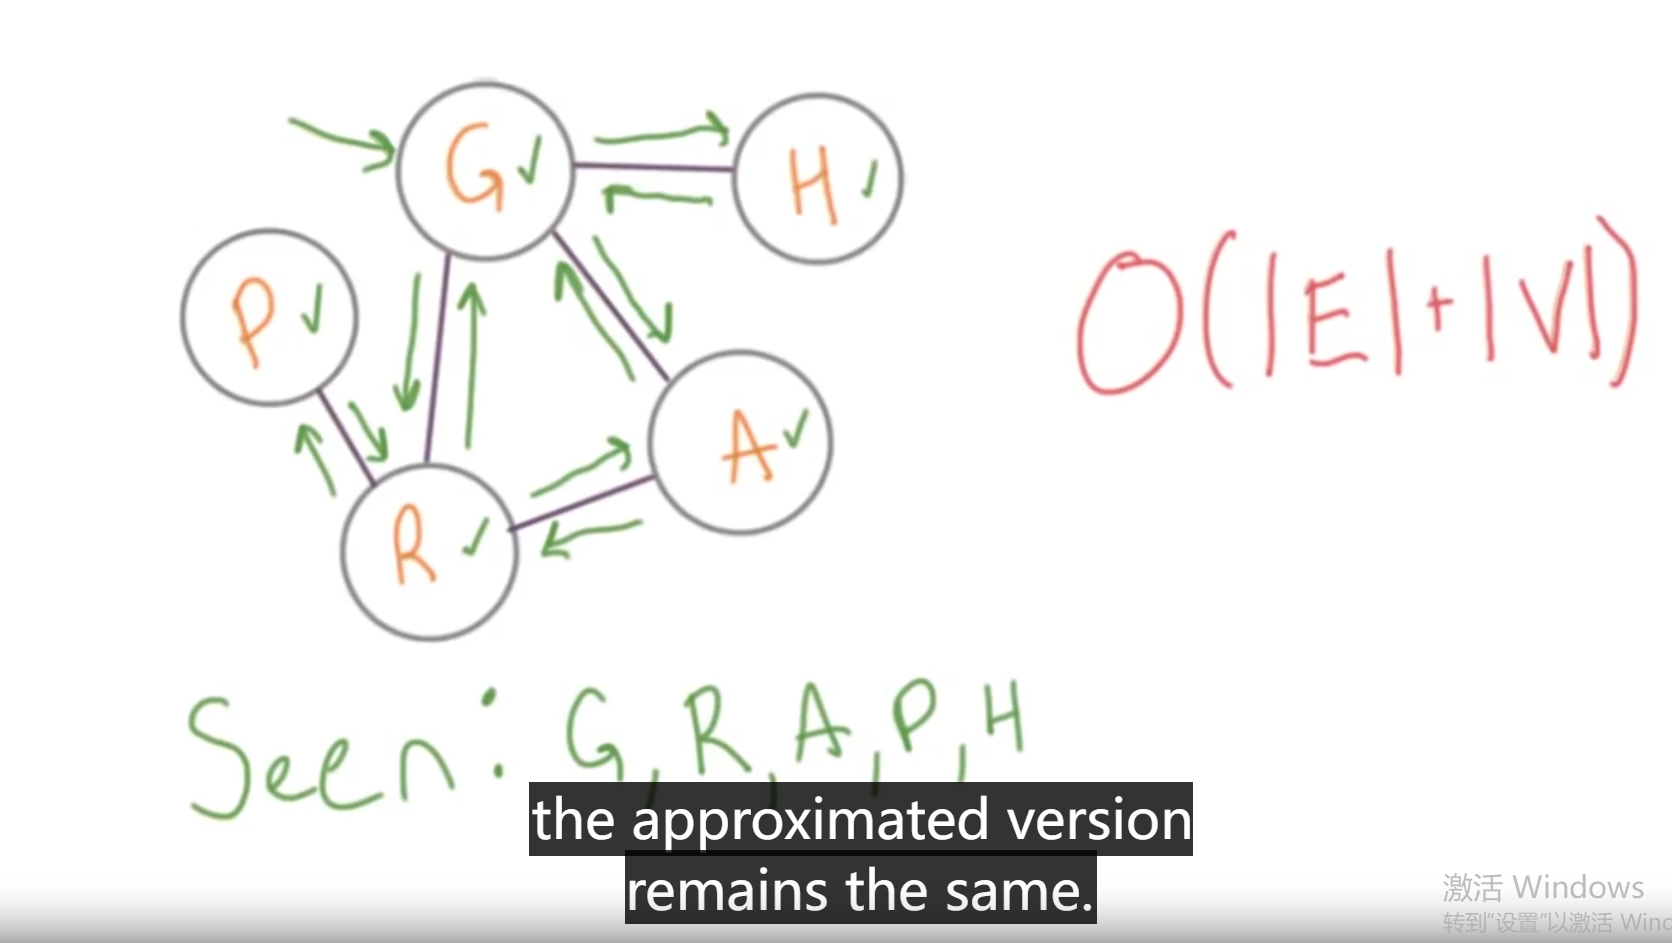 G✓
H✓
P✓
O(|E|+|V|)
A✓
R✓
Seen: G, R, A, P, H
the approximated version
remains the same.
激活 Windows
转到“设置”以激活 Wind